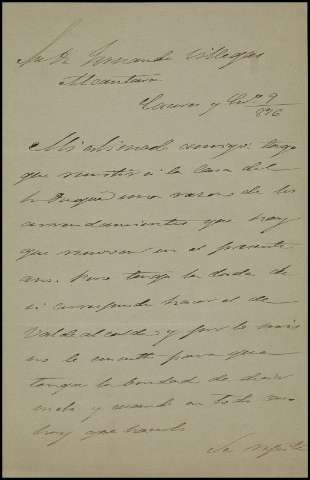 Sr Dn Fernando Villegas
Alcantara
Caceres y En.o 9
/896
Mi estimado amigo: tengo
que remitir á la Casa del
Sr Duque una razon de los
arrendamientos que hay
que renovar en el presente
año. Pero tengo la duda de
si corresponde hacer el de
Valdealcalde; y por lo mismo
para que
tenga la bondad de decir
melo y cuando en todo
hay que hacerlo
Se repite